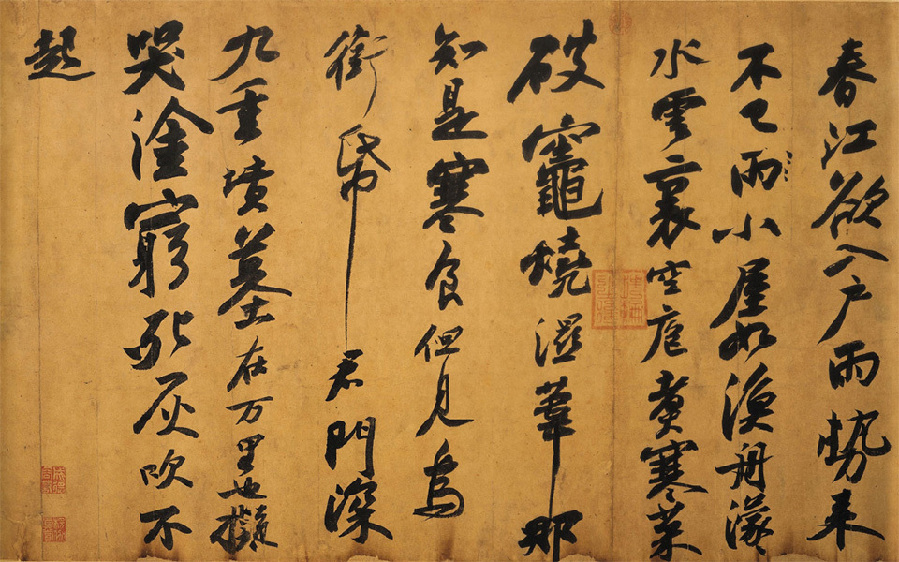 春江欲入戶雨勢來
不已雨小屋如漁舟濛〻
水雲裏空庖煑寒菜
破竈燒濕葦那
知是寒食但見烏
銜帋君門深
九重墳墓在万里也擬
哭塗窮死灰吹不
起